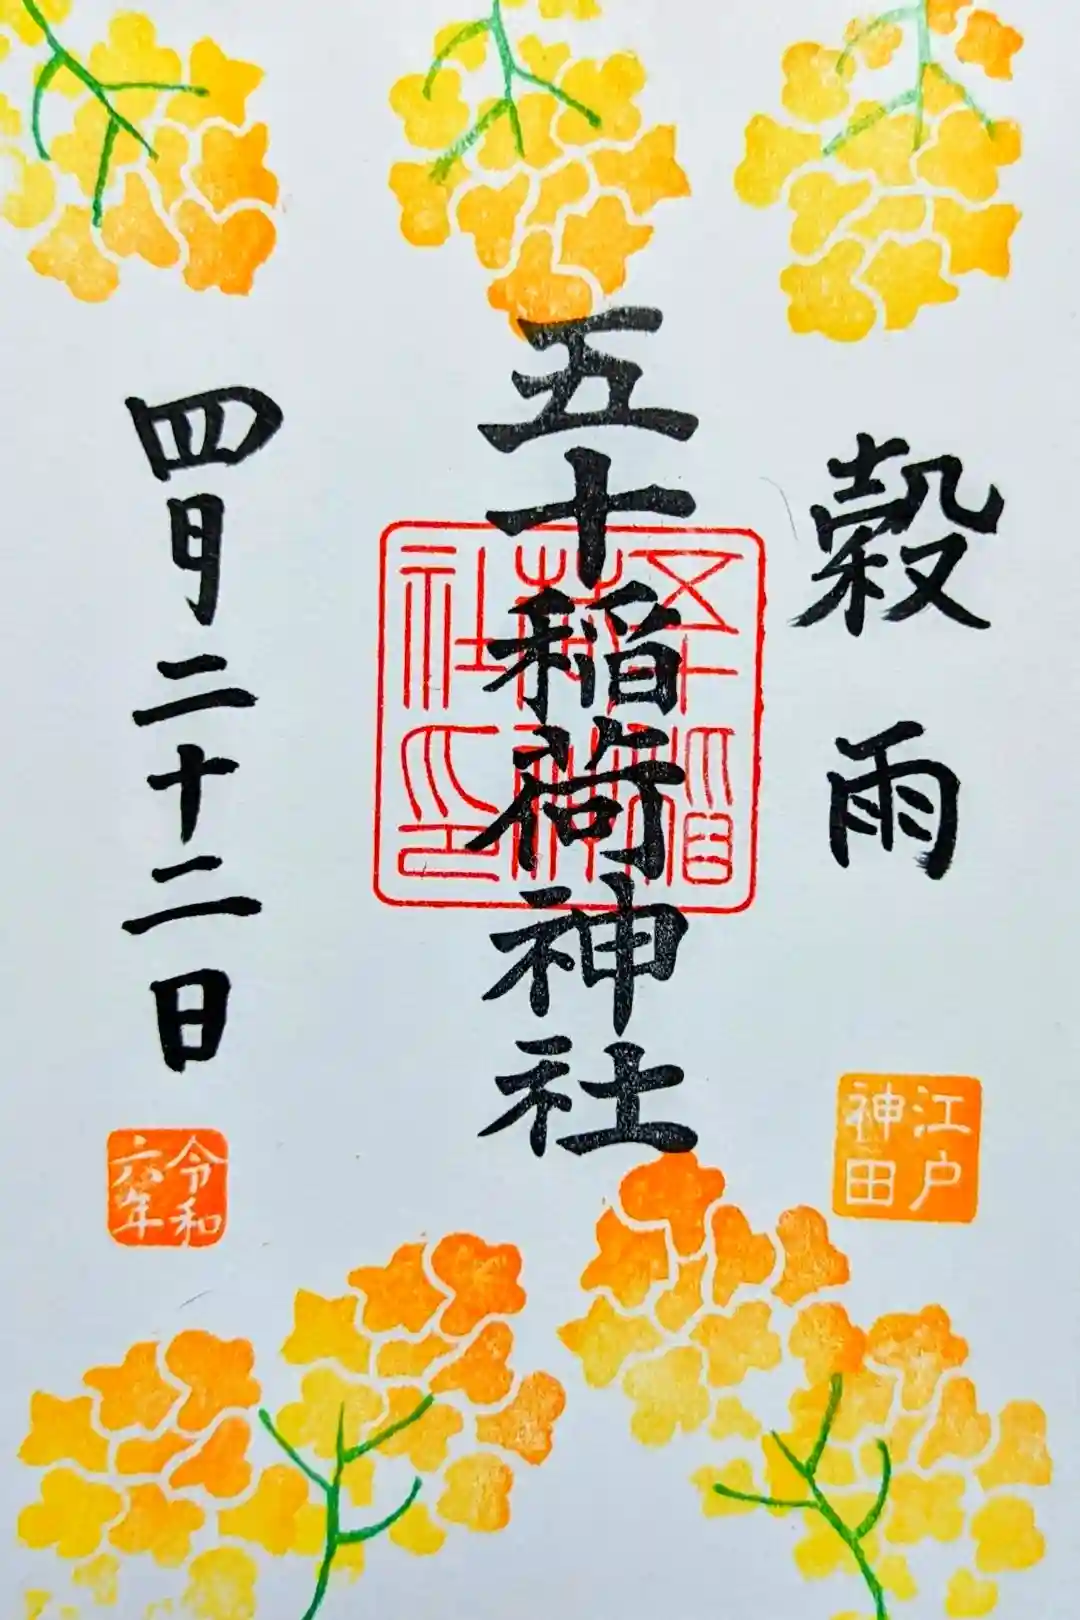 穀雨
江戸
神田
五十稲荷神社
五十稲
荷神
社印
四月二十二日
令和
六年